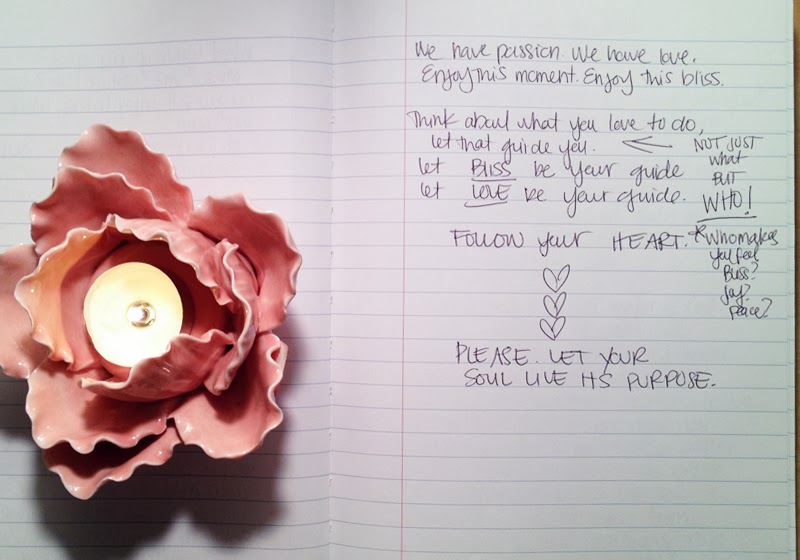 We have passion. We have love.
Enjoy this moment. Enjoy this bliss.
Think about what you love to do,
let that guide you.
let BLISS be your guide
let LOVE be your guide.
FOLLOW your HEART.
PLEASE. LET YOUR
SOUL LIVE ITS PURPOSE.
NOT JUST
what
BUT
WHO!
*Who makes
you feel
Bliss?
Joy?
peace?